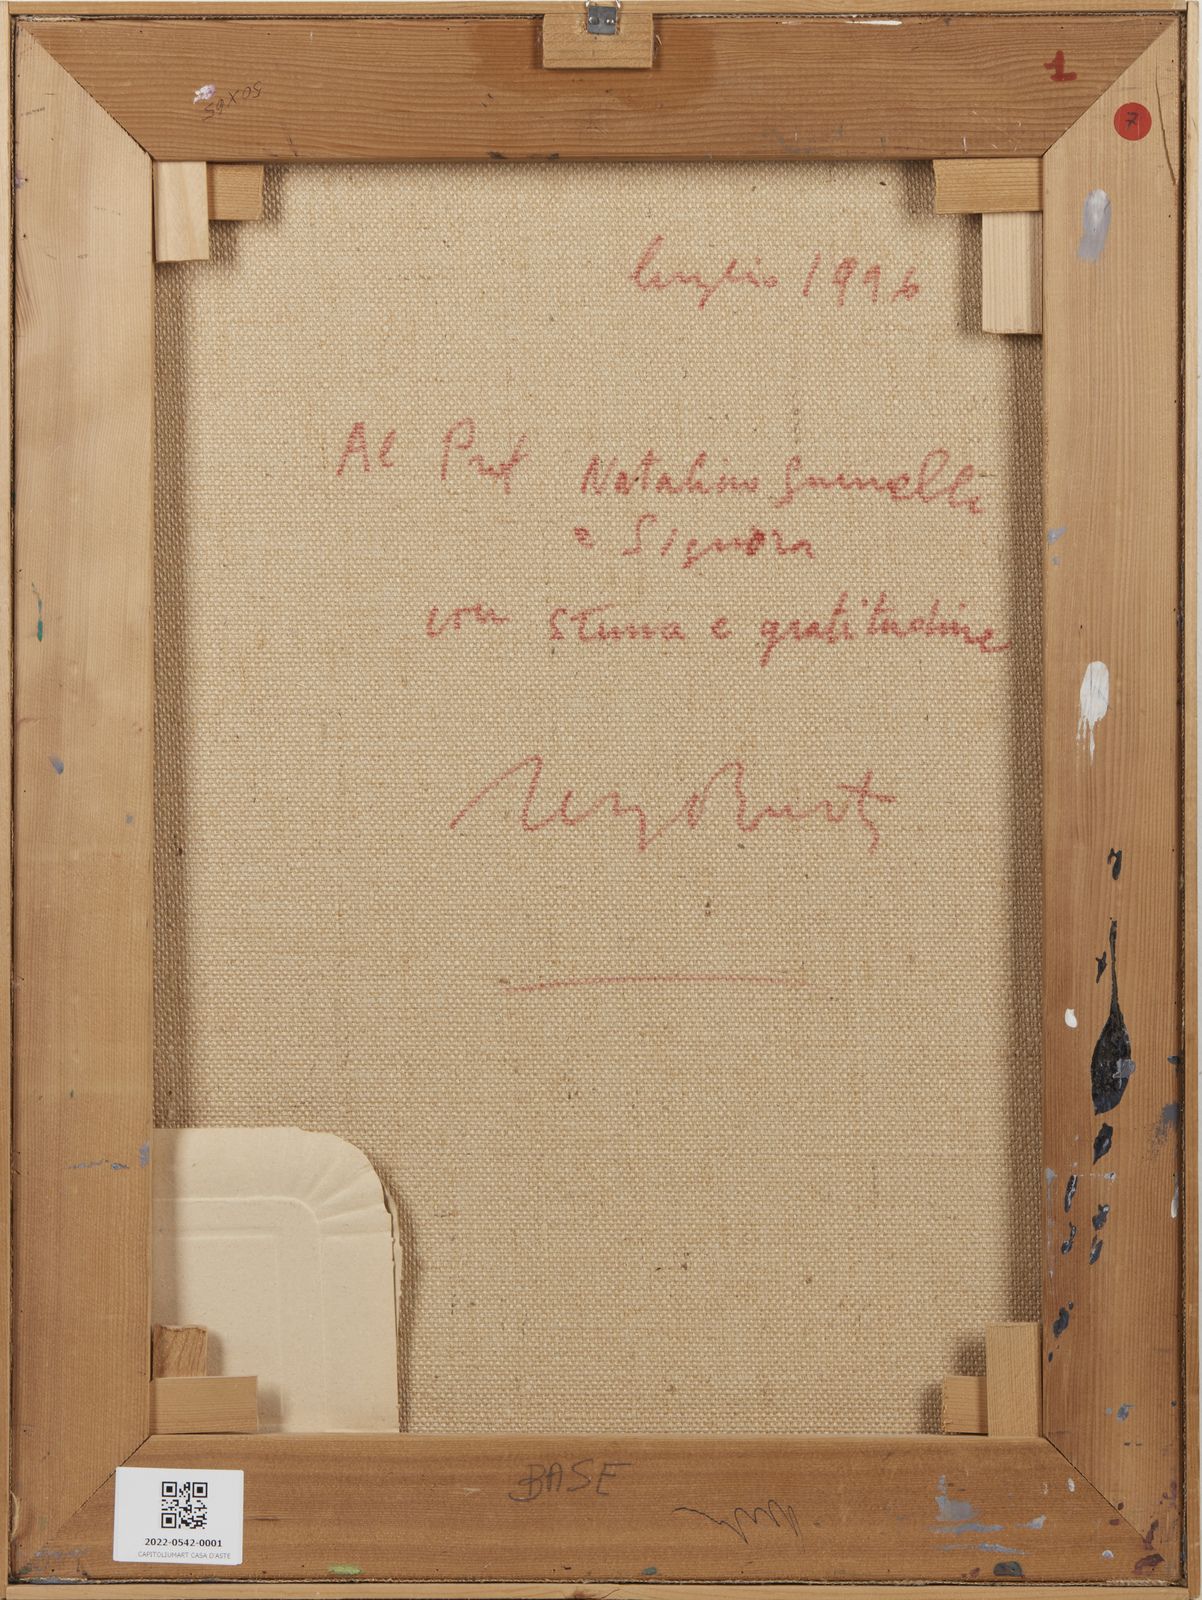 50X65
1
7
luglio 1996
Al Prof Natalino
e Signora
con stima e gratitudine
BASE
2022-0542-0001
CAPITOLIUMART CASA D'ASTE